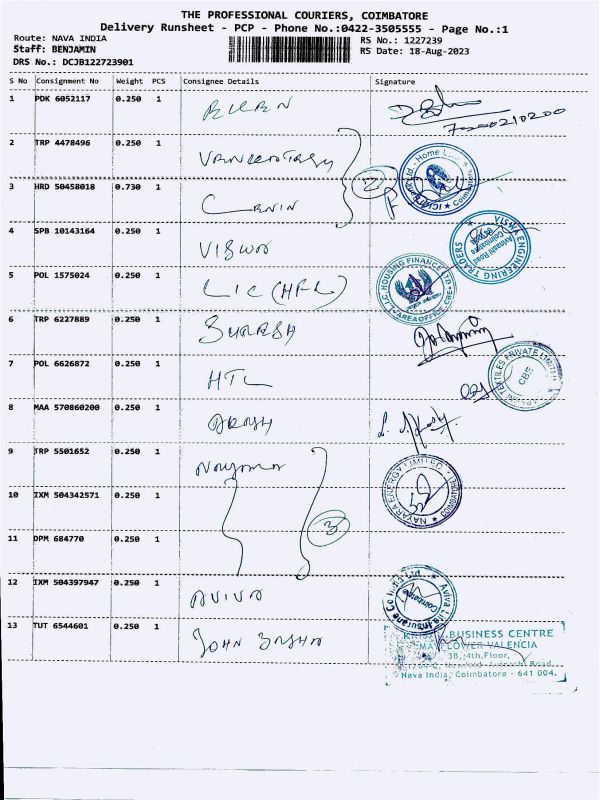 THE PROFESSIONAL COURIERS, COIMBATORE
Delivery Runsheet - PCP - Phone No.:0422-3505555 - Page No.:1
Route: NAVA INDIA
RS No.: 1227239
Staff: BENJAMIN
RS Date: 18-Aug-2023
DRS No.: DCJB122723901
S No Consignment No Weight PCS Consignee Details Signature
1 PDK 6052117 0.250 1
2 TRP 4478496 0.250 1
3 HRD 50458018 0.730 1
2
4 SPB 10143164 0.250 1
VISWA ENGINEERING TRADERS
Avinashi Road
Coimbatore
5 POL 1575024 0.250 1 LIC (HFL)
L.I.C. HOUSING FINANCE LTD
AREA OFFICE, CBE
6 TRP 6227889 0.250 1 SURESH
7 POL 6626872 0.250 1 HTL
TEXTILES PRIVATE LIMITED
CBE
8 MAA 570860200 0.250 1
9 TRP 5501652 0.250 1 Nayara
NAYARA ENERGY LIMITED
10 IXM 504342571 0.250 1
3
11 DPM 684770 0.250 1
12 IXM 504397947 0.250 1 AVIVA
Aviva Life Insurance Co India Ltd.
Coimbatore
13 TUT 6544601 0.250 1 JOHN BASHA
BUSINESS CENTRE
MAYFLOWER VALENCIA
38, 4th Floor,
Nava India, Coimbatore - 641 004.